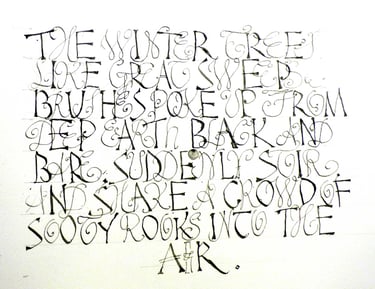 THE WINTER TREES
LIKE GREAT SWEEPS
BRUSHES POKE UP FROM
DEEP EARTH BLACK AND
BARE. SUDDENLY STIR
AND SHAKE A CROWD OF
SOOTY ROOKS INTO THE
AIR.